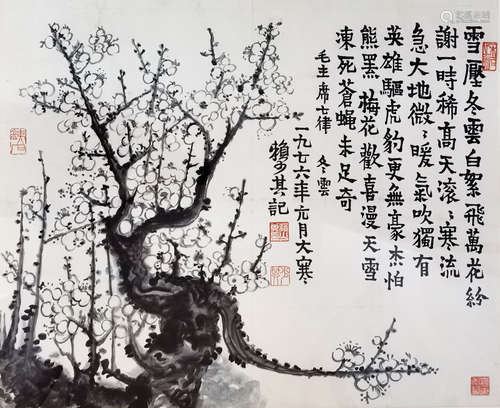 雪壓冬雲白絮飛萬花紛
謝一時稀高天滾〻寒流
急大地微〻暖氣吹獨有
英雄驅虎豹更無豪杰怕
熊羆梅花歡喜漫天雪
凍死蒼蝇未足奇
毛主席七律 冬雲
一九七六年元月大寒
賴少其記